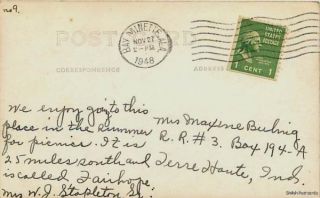 no9.
POSTCARD
CORRESPONDENCE
ADDRESS
BAY MINETTE, ALA.
NOV 27
2 - PM
1948
UNITED STATES
POSTAGE
1 CENT 1
We enjoy going to this
place in the summer
for picnics. It is
25 miles south and
is called Fairhope.
Mrs W. J. Stapleton Sr.
Mrs Maxine
R. R. # 3. Box 194-A
Terre Haute, Ind.